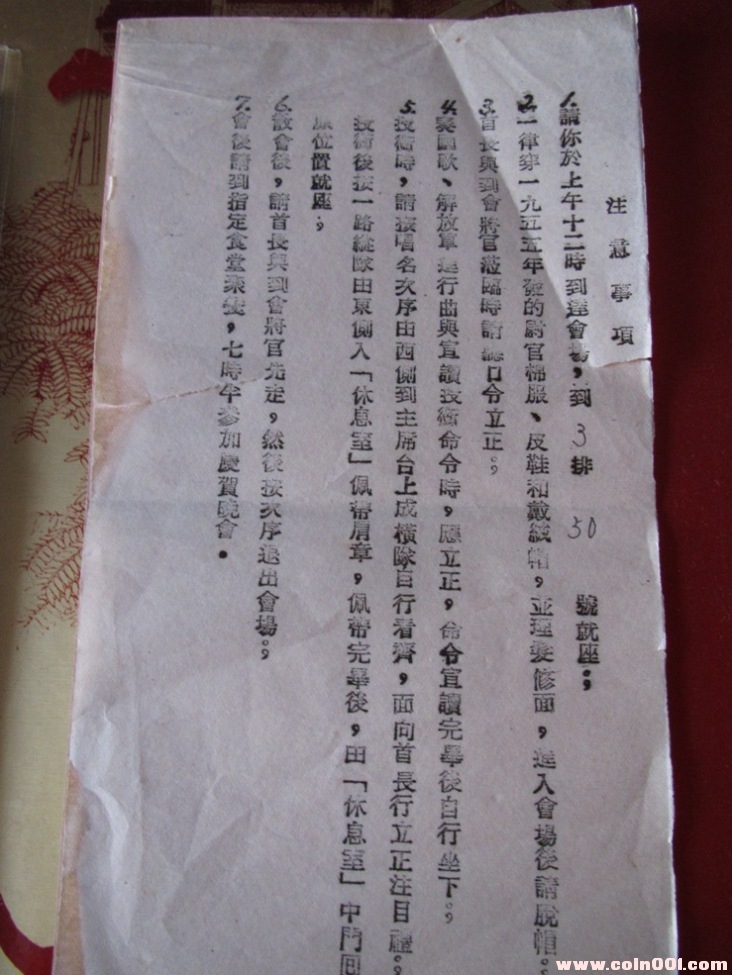 注意事項
1.請你於上午十二時到達會場，到3排50號就座；
2.一律穿一九五五年發的尉官棉服、皮鞋和戴絨帽，並理髮修面，進入會場後請脫帽。
3.首長與到會將官蒞臨時請聽口令立正。
4.奏國歌、解放軍進行曲與宣讀授銜命令時，應立正，命令宣讀完畢後自行坐下。
5.授銜時，請按唱名次序由西側到主席台上成橫隊自行看齊，面向首長行立正注目禮。
授銜後按一路縱隊由東側入「休息室」佩帶肩章，佩帶完畢後，由「休息室」中門回
原位置就座；
6.散會後，請首長與到會將官先走，然後按次序退出會場。
7.會後請到指定食堂聚餐，七時半參加慶賀晚會．
www.coin001.com